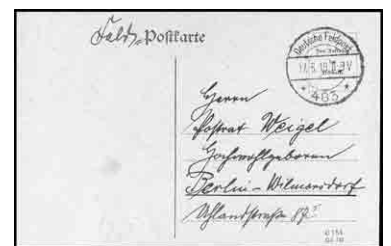 Feld-Postkarte
Deutsche Feldpost
403
Herrn
Postrat Weigel
Hochwohlgeboren
Berlin-Wilmersdorf
Uhlandstraße